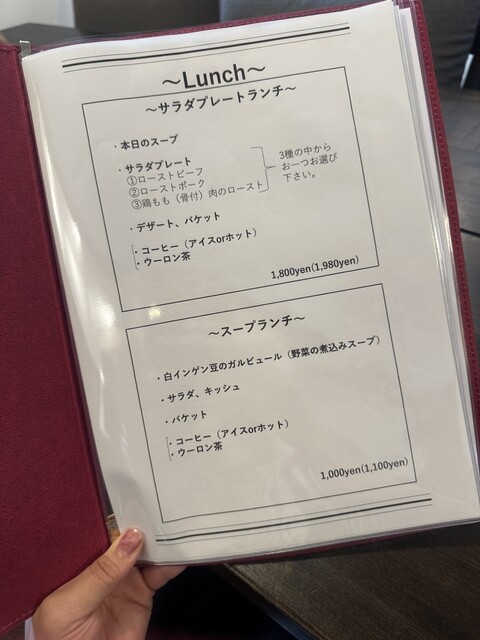 ～Lunch～
～サラダプレートランチ～
・本日のスープ
・サラダプレート
①ローストビーフ
②ローストポーク
③鶏もも（骨付）肉のロースト
3種の中から
お一つお選び
下さい。
・デザート、バケット
・コーヒー（アイスorホット）
・ウーロン茶
1,800yen(1,980yen)
～スープランチ～
・白インゲン豆のガルビュール（野菜の煮込みスープ）
・サラダ、キッシュ
・バケット
・コーヒー（アイスorホット）
・ウーロン茶
1,000yen(1,100yen)